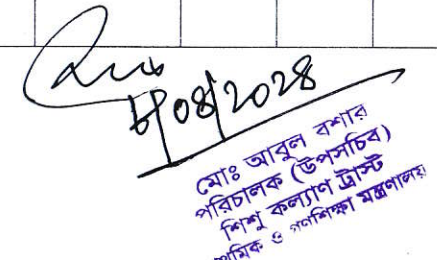 ০৪/২০২৪
মোঃ আবুল বশার
পরিচালক (উপসচিব)
শিশু কল্যাণ ট্রাস্ট
ও গণশিক্ষা মন্ত্রণালয়